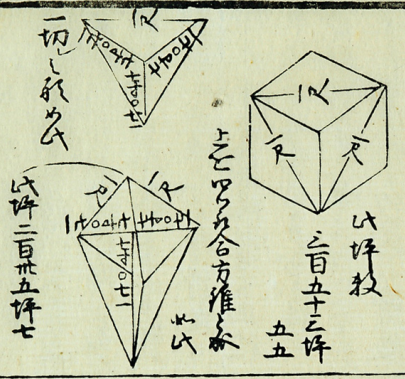 一尺
一尺
一尺
此坪数
三百五十三坪
五五
上を四ツ
合方錐之形
如此
一尺
七寸〇七一
七寸〇七一
七寸〇七一
一切之形如此
一尺
一尺
七寸〇七一
七寸〇七一
七寸〇七一
此坪二百卅五坪七